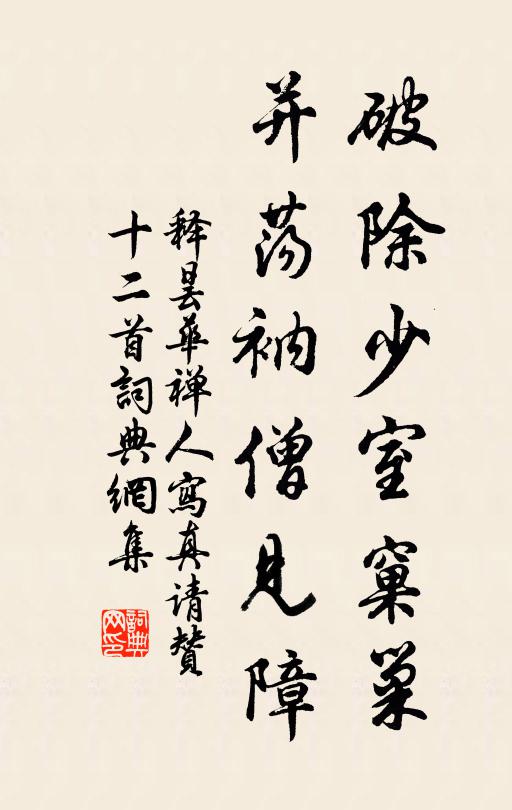 破除少室窠巢
并荡衲僧見障
释昙华禅人寫真请贊
十二首詞典網集
詞典网印